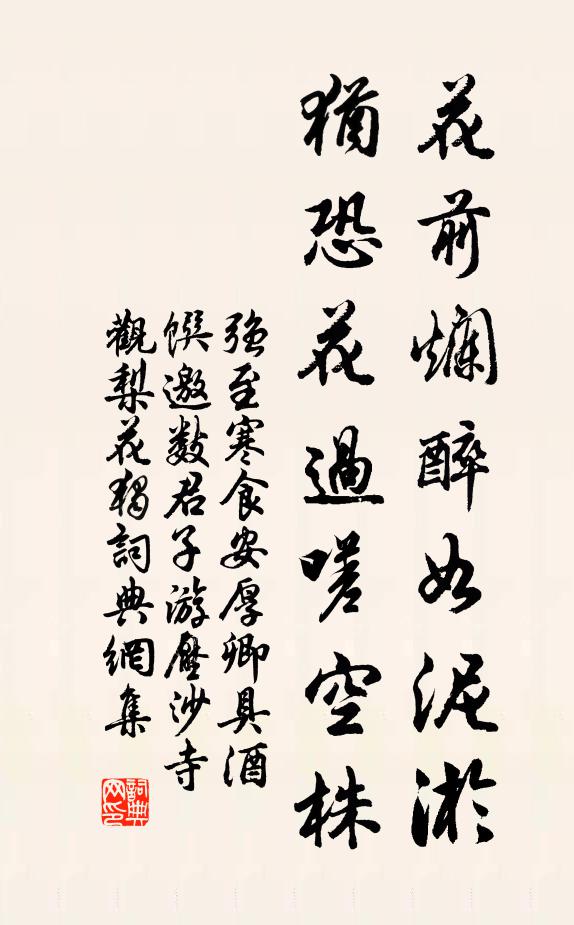 花前爛醉如泥淤
猶恐花過嗟空株
強至寒食安厚卿具酒
饌邀數君子游壓沙寺
觀梨花獨詞典網集
詞典網印